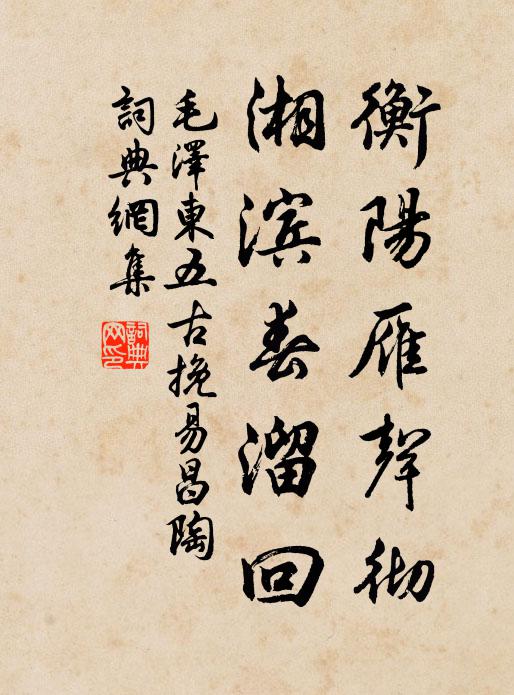 衡陽雁聲彻
湘滨春溜回
毛澤東五古挽易昌陶
詞典網集
詞典
网印